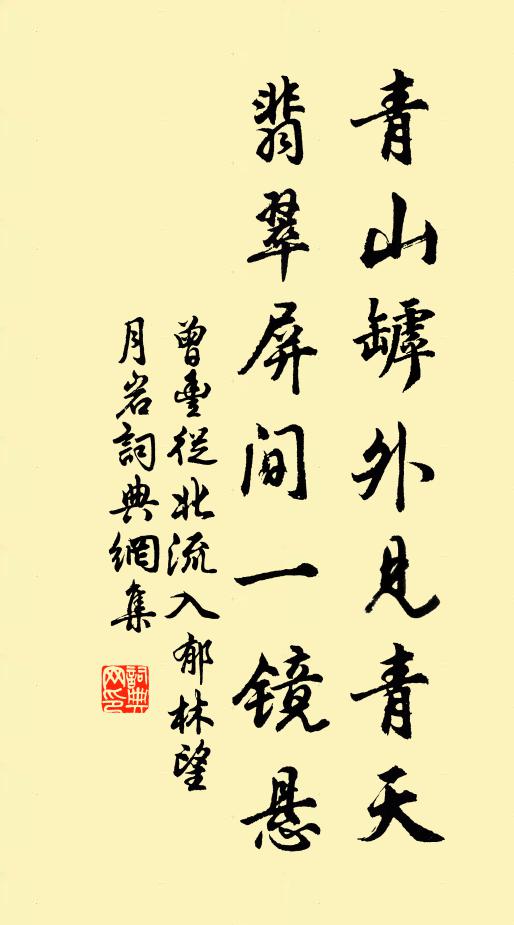 青山罅外见青天
翡翠屏间一镜悬
曾丰从北流入郁林望
月岩詞典網集
詞典
网印